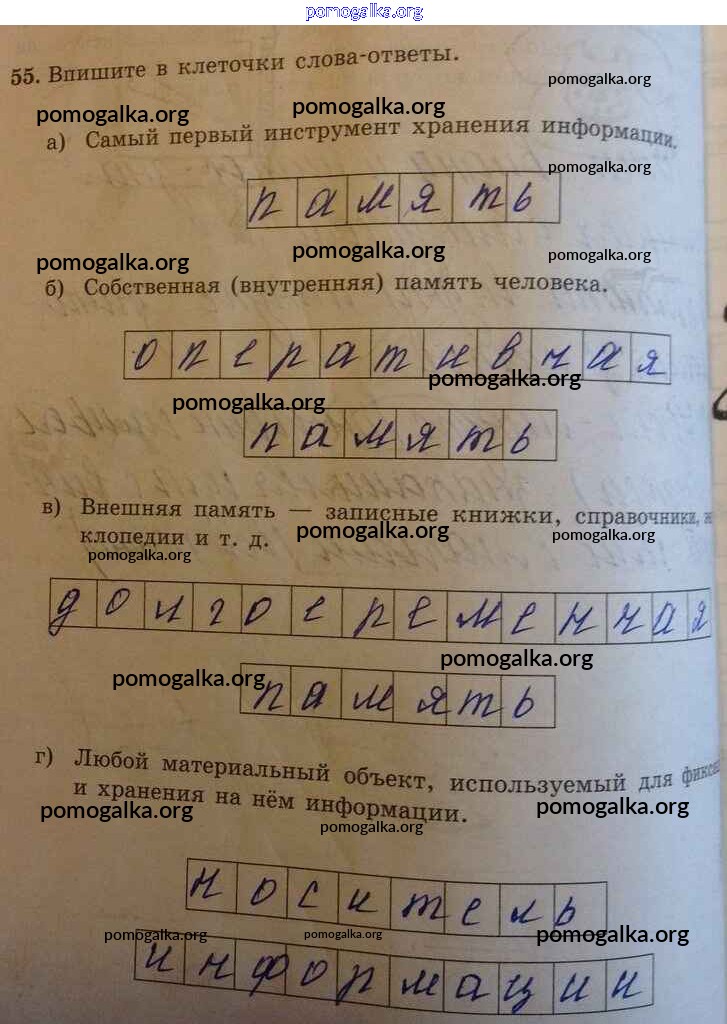 pomogalka.org
55. Впишите в клеточки слова-ответы.
pomogalka.org
pomogalka.org
pomogalka.org
а) Самый первый инструмент хранения информации.
pomogalka.org
память
pomogalka.org
pomogalka.org
pomogalka.org
б) Собственная (внутренняя) память человека.
оперативная
pomogalka.org
pomogalka.org
память
в) Внешняя память — записные книжки, справочники,
клопедии и т. д.
pomogalka.org
pomogalka.org
pomogalka.org
долговременная
pomogalka.org
pomogalka.org
память
г) Любой материальный объект, используемый для
и хранения на нём информации.
pomogalka.org
pomogalka.org
pomogalka.org
носитель
pomogalka.org
pomogalka.org
pomogalka.org
информации